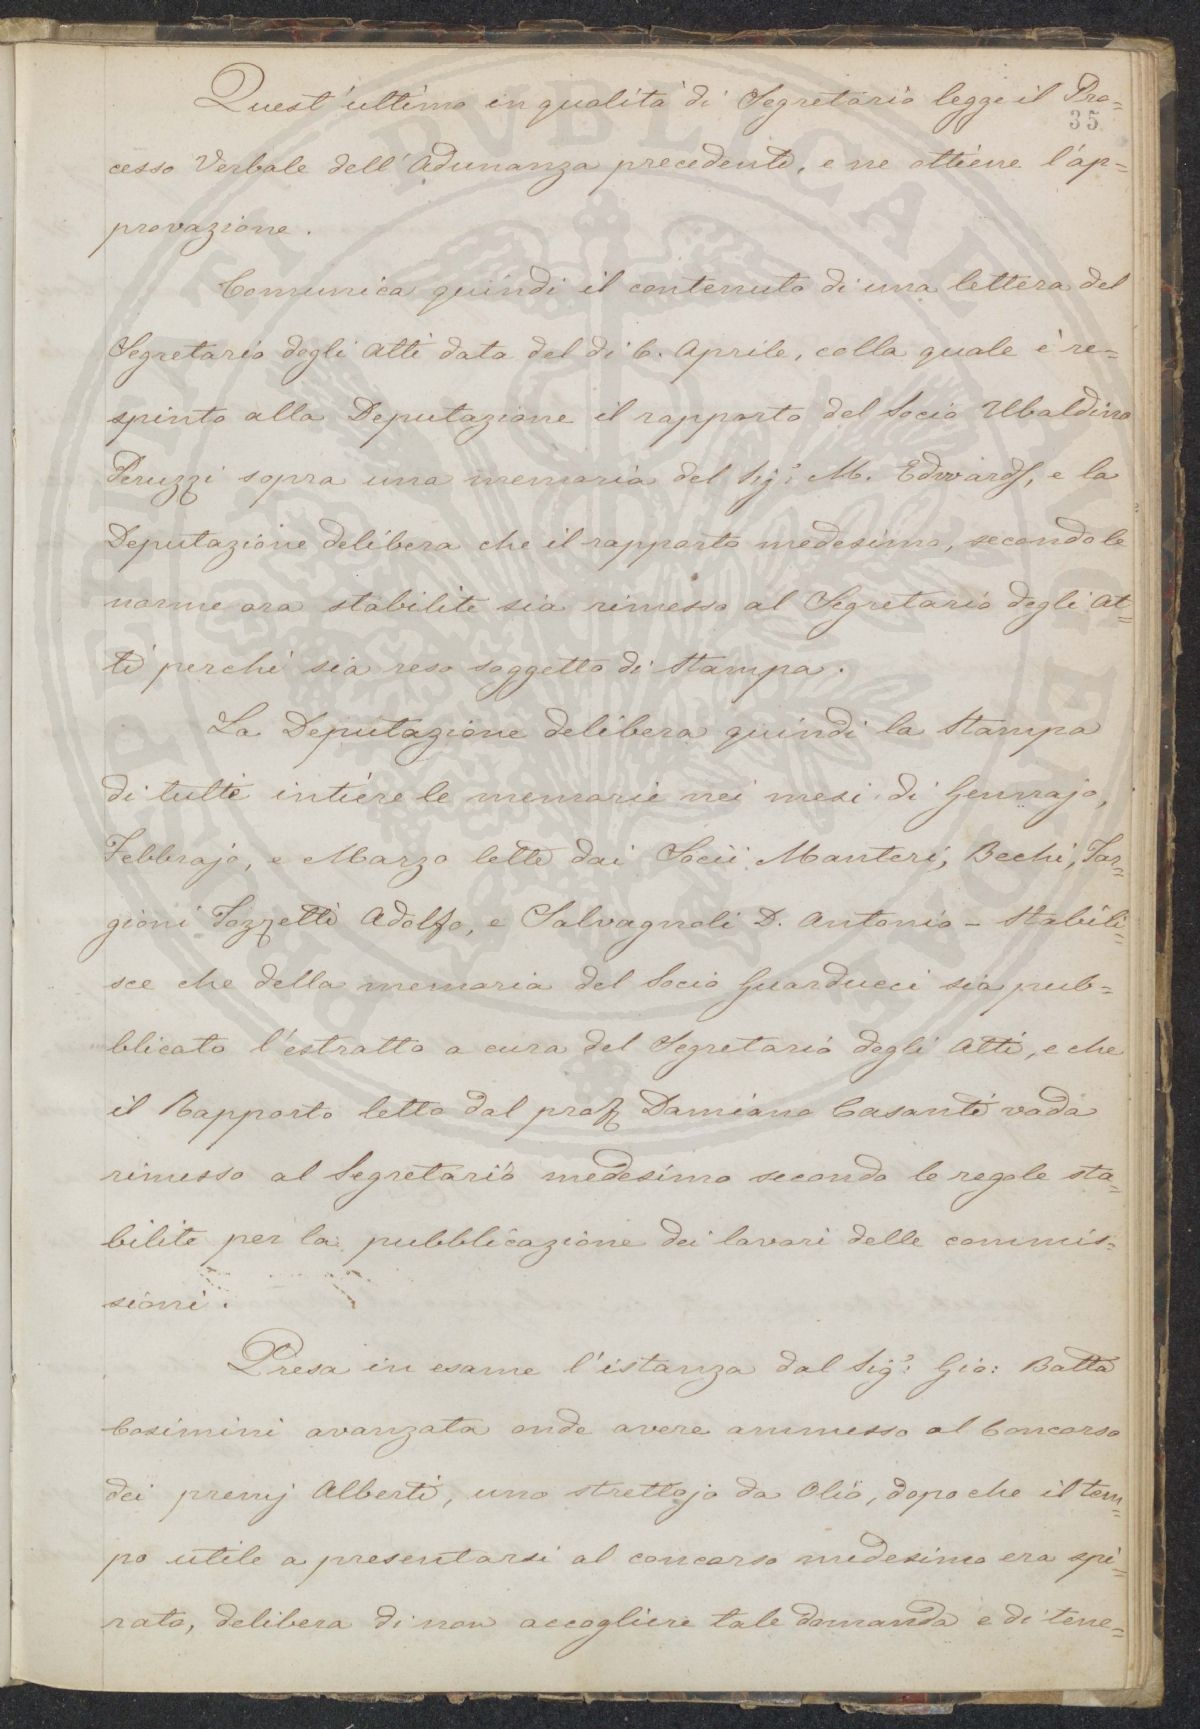 Quest'ultimo in qualità di Segretario legge il Pro=
35
cesso Verbale dell'Adunanza precedente, e ne ottiene l'ap=
provazione.
Comunica quindi il contenuto di una lettera del
Segretario degli Atti data del di 6. Aprile, colla quale è re=
spinto alla Deputazione il rapporto del Socio Ubaldino
Peruzzi sopra una memoria del Sigr: M. Edwards, e la
Deputazione delibera che il rapporto medesimo, secondo le
norme ora stabilite sia rimesso al Segretario degli At=
ti perchè sia reso soggetto di Stampa.
La Deputazione delibera quindi la Stampa
di tutte intiere le memorie nei mesi di Gennajo,
Febbrajo, e Marzo lette dai Socii Manteri, Bechi, Tar=
gioni Tozzetti Adolfo, e Salvagnoli D. Antonio - Stabili=
sce che della memoria del Socio Guarducci sia pub=
blicato l'estratto a cura del Segretario degli Atti, e che
il Rapporto letto dal prof Damiano Casanti vada
rimesso al Segretario medesimo secondo le regole sta=
bilite per la pubblicazione dei lavori delle commis=
sioni.
Presa in esame l'istanza dal Sigr: Gio: Batta
Cosimini avanzata onde avere ammesso al Concorso
dei premj Alberti, uno strettojo da Olio, dopo che il tem=
po utile a presentarsi al concorso medesimo era spi=
rato, delibera di non accogliere tale domanda e di tene=
PERIVATAE PVBLICAE